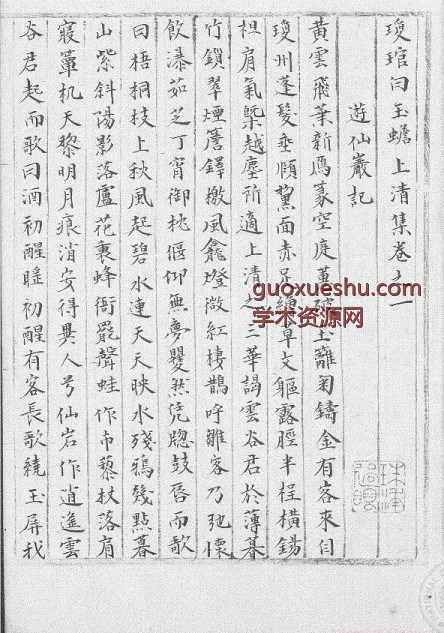 瓊琯白玉蟾上清集卷之一
遊仙巖記
黃雲飛葉新鴈篆空庭蕙破玉籬菊鑄金有客來自
瓊州蓬髮垂頤黧面赤足纏草文軀露脛半裎橫錫
袒肩氣槩越塵所適上清之三華謁雲谷君於薄暮
竹鎖翠煙簷鐸撽風龕燈微紅棲鵲呼雛客乃弛懷
飲瀑茹芝丁宵御枕偃仰無夢矍然凭牕鼓唇而歌
曰梧桐枝上秋風起碧水連天天映水殘鴉幾點暮
山紫斜陽影落蘆花裏蜂衙罷聲蛙作市藜杖落肩
寢簟机天黎明月痕消安得異人兮仙岩作逍遙雲
谷君起而歌曰酒初醒睡初醒有客長歌繞玉屏我
guoxueshu.com
学术资源网